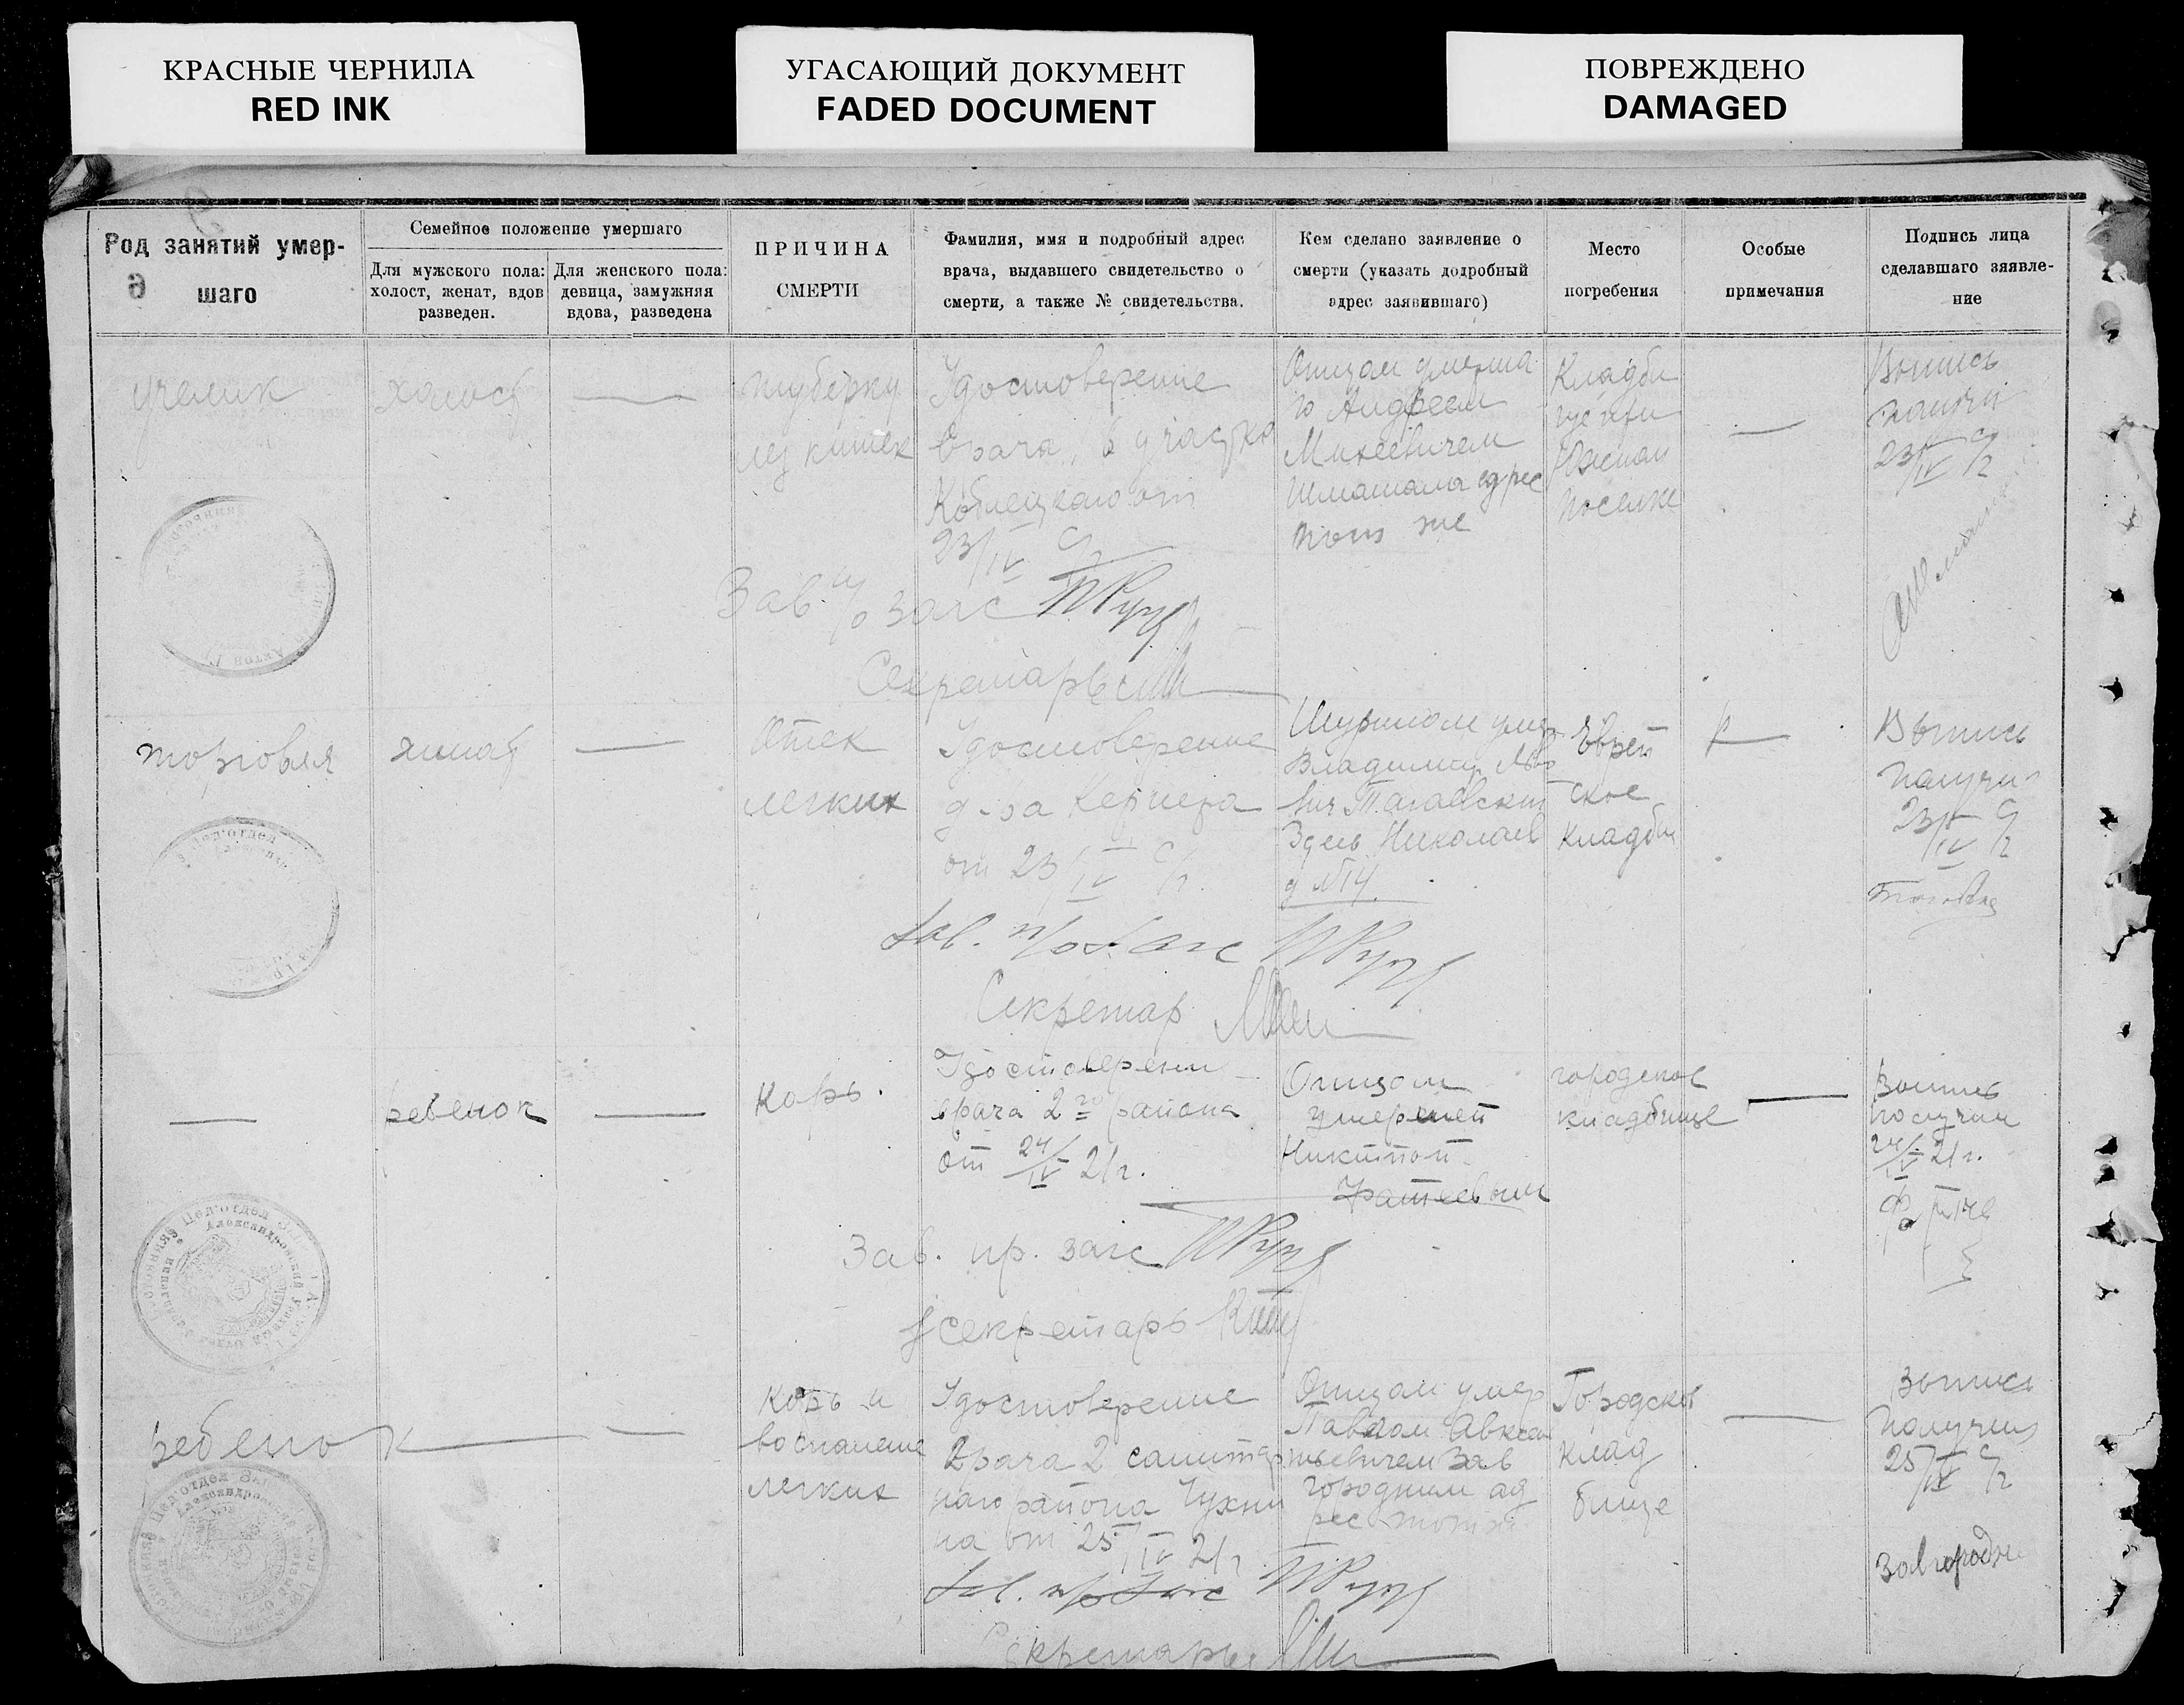 КРАСНЫЕ ЧЕРНИЛА
RED INK
УГАСАЮЩИЙ ДОКУМЕНТ
FADED DOCUMENT
ПОВРЕЖДЕНО
DAMAGED
Род занятий умер-
шаго
Семейное положение умершаго
Для мужского пола:
холост, женат, вдов
разведен.
Для женского пола:
девица, замужняя
вдова, разведена
ПРИЧИНА
СМЕРТИ
Фамилия, имя и подробный адрес
врача, выдавшего свидетельство о
смерти, а также № свидетельства.
Кем сделано заявление о
смерти (указать додробный
адрес заявившаго)
Место
погребения
Особые
примечания
Подпись лица
сделавшаго зяявле-
ние
ученик
холост
туберку
лез кишек
Удостоверение
врача, 6 участка
от
23/IV с/г
Отцом умерша
го Андреем
Михеевичем
адрес
тот же
Кладби
ще при
Южном
поселке
Выпись
получил
23/IV с/г
Зав. п/о загс
Секретарь
торговля
женат
Отек
легких
Удостоверение
д-ра
от 23/IV с/г.
Шурином умер
Владимир
Здесь Николаев
д №14.
Еврей
ское
кладби
Выпись
получил
23/IV с/г
Зав. п/о Загс
Секретар
ребенок
Корь.
Удостоверени
врача 2го района
от 24/IV 21г.
Отцом
умершей
Никитой
городское
кладбище
Выпись
получил
24/IV 21г.
Зав. пр. загс
Секретарь
ребенок
Корь и
воспаление
легких
Удостоверение
врача 2 санитар
ного района Чухни
на от 25/IV 21г
Отцом умер
Павлом Авксен
тьевичем Зав
городним ад
рес тот же
Городское
клад
бище
Выпись
получил
25/IV с/г
Завгородн
Зав. п/о Загс
Секретарь